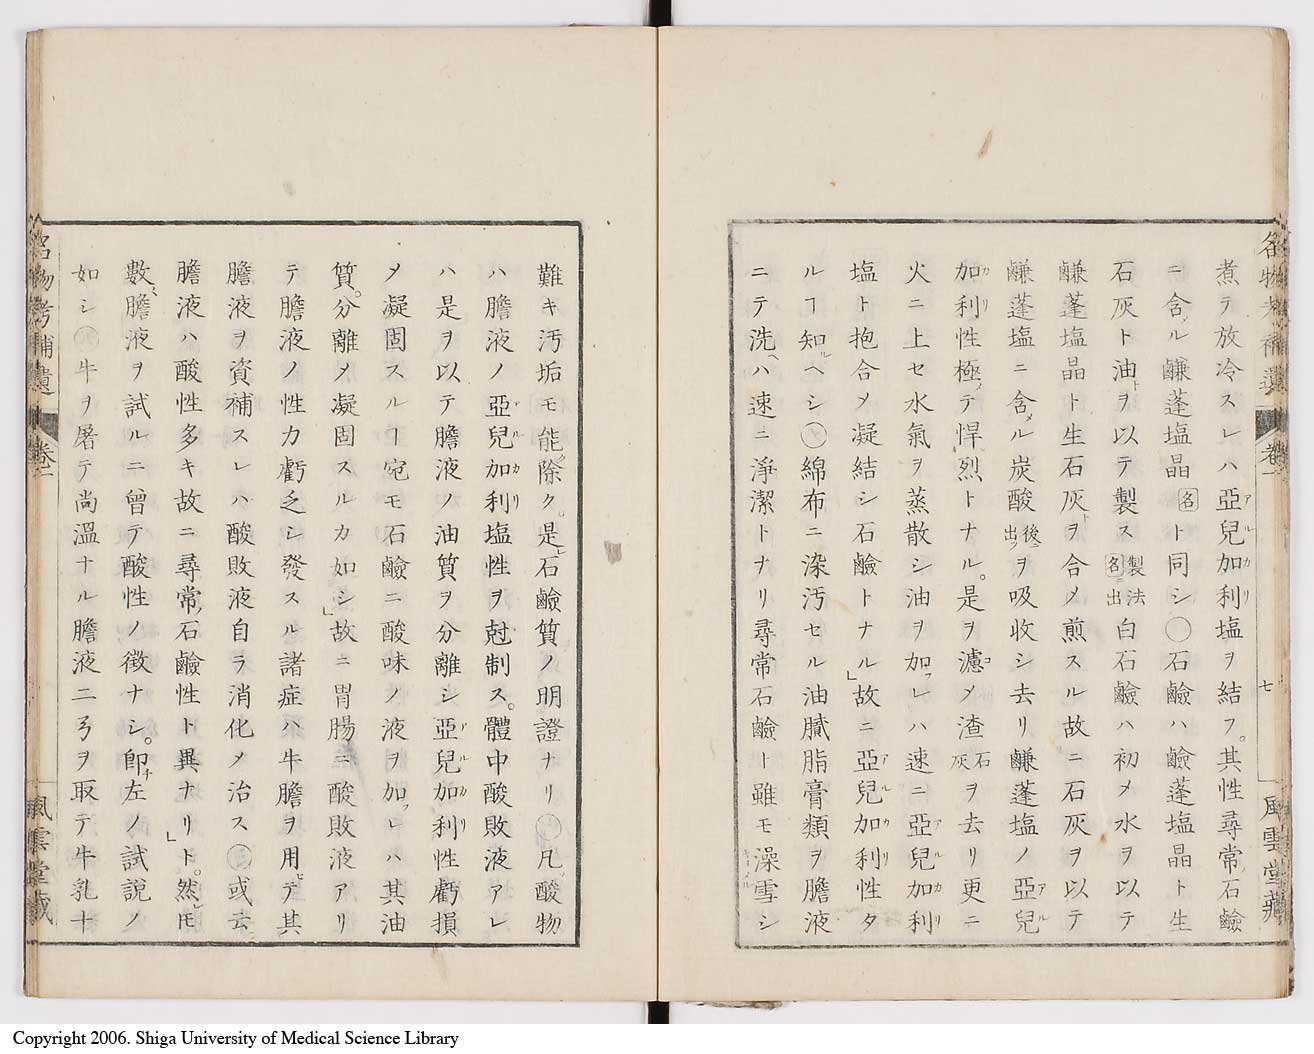 名物考補遺 卷一 七 風雲堂藏
煮テ放冷スレハ亞兒加利塩ヲ結フ。其性尋常ノ石鹼
ニ含メル鹻蓬塩晶名ト同シ〇石鹼ハ鹼蓬塩晶ト生
石灰ト油トヲ以テ製ス製法名ニ出白石鹼ハ初メ水ヲ以テ
鹻蓬塩晶ト生石灰トヲ合メ煎スル故ニ石灰ヲ以テ
鹻蓬塩ニ含メル炭酸後ニ出ツヲ吸收シ去リ鹻蓬塩ノ亞兒
加利性極メテ悍烈トナル。是ヲ濾メ渣石灰ヲ去リ更ニ
火ニ上セ水氣ヲ蒸散シ油ヲ加フレハ速ニ亞兒加利
塩ト抱合メ凝結シ石鹼トナル」故ニ亞兒加利性タ
ルヿ知ルヘシ〇綿布ニ染汚セル油膩脂膏類ヲ膽液
ニテ洗ヘハ速ニ淨潔トナリ尋常石鹼ト雖モ澡雪シ
難キ汚垢モ能ク除ク。是レ石鹼質ノ明證ナリ〇凡ソ酸物
ハ膽液ノ亞兒加利塩性ヲ尅制ス。體中酸敗液アレ
ハ是ヲ以テ膽液ノ油質ヲ分離シ亞兒加利性虧損
メ凝固スルヿ宛モ石鹼ニ酸味ノ液ヲ加フレハ其油
質。分離メ凝固スルカ如シ」故ニ胃腸ニ酸敗液アリ
テ膽液ノ性力虧乏シ發スル諸症ハ牛膽ヲ用ヒテ其
膽液ヲ資補スレハ酸敗液自ラ消化メ治ス〇或云
膽液ハ酸性多キ故ニ尋常ノ石鹼性ト異ナリ」ト。然レ𪜈
數膽液ヲ試ルニ曾テ酸性ノ徵ナシ。卽チ左ノ試說ノ
如シ〇牛ヲ屠テ尚溫ナル膽液二弓ヲ取テ牛乳十
名物考補遺 卷一 風雲堂藏
Copyright 2006. Shiga University of Medical Science Library